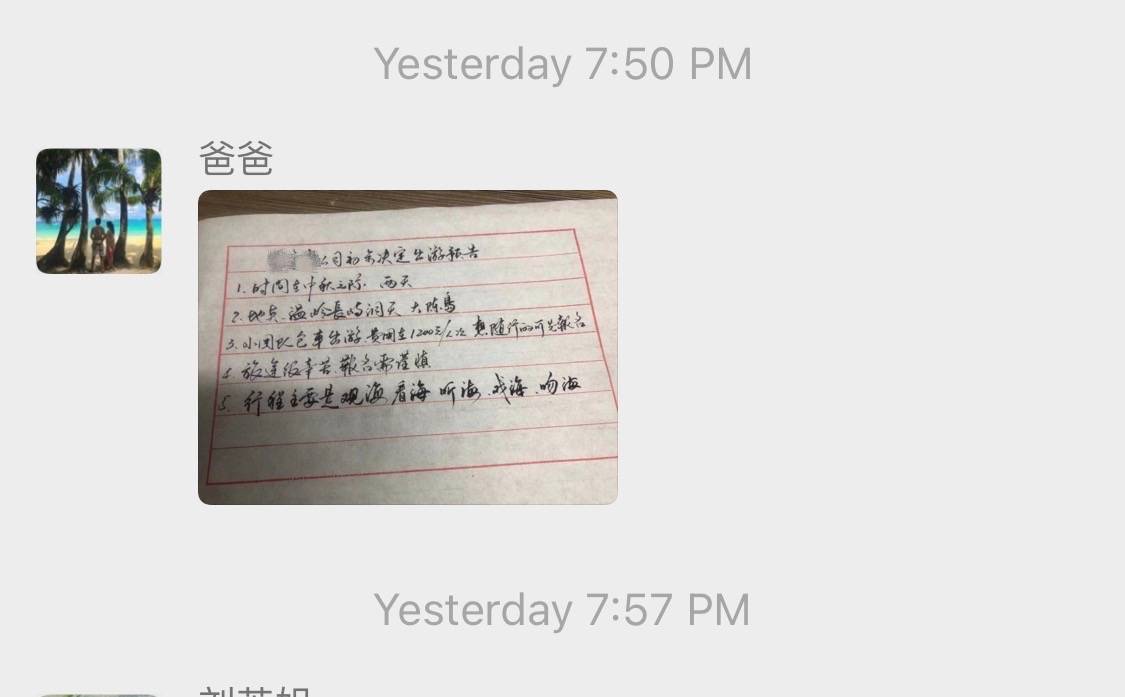 Yesterday 7:50 PM
爸爸
公司初步决定出游预告
1. 时间在中秋之际 两天
2. 地点 温岭長屿洞天 大陈島
3. 小团队包车出游 费用在1200元/人次 想随行的可先報名
4. 旅途很辛苦 報名需谨慎
5. 行程主要是观海 看海 听海 戏海 吻海
Yesterday 7:57 PM